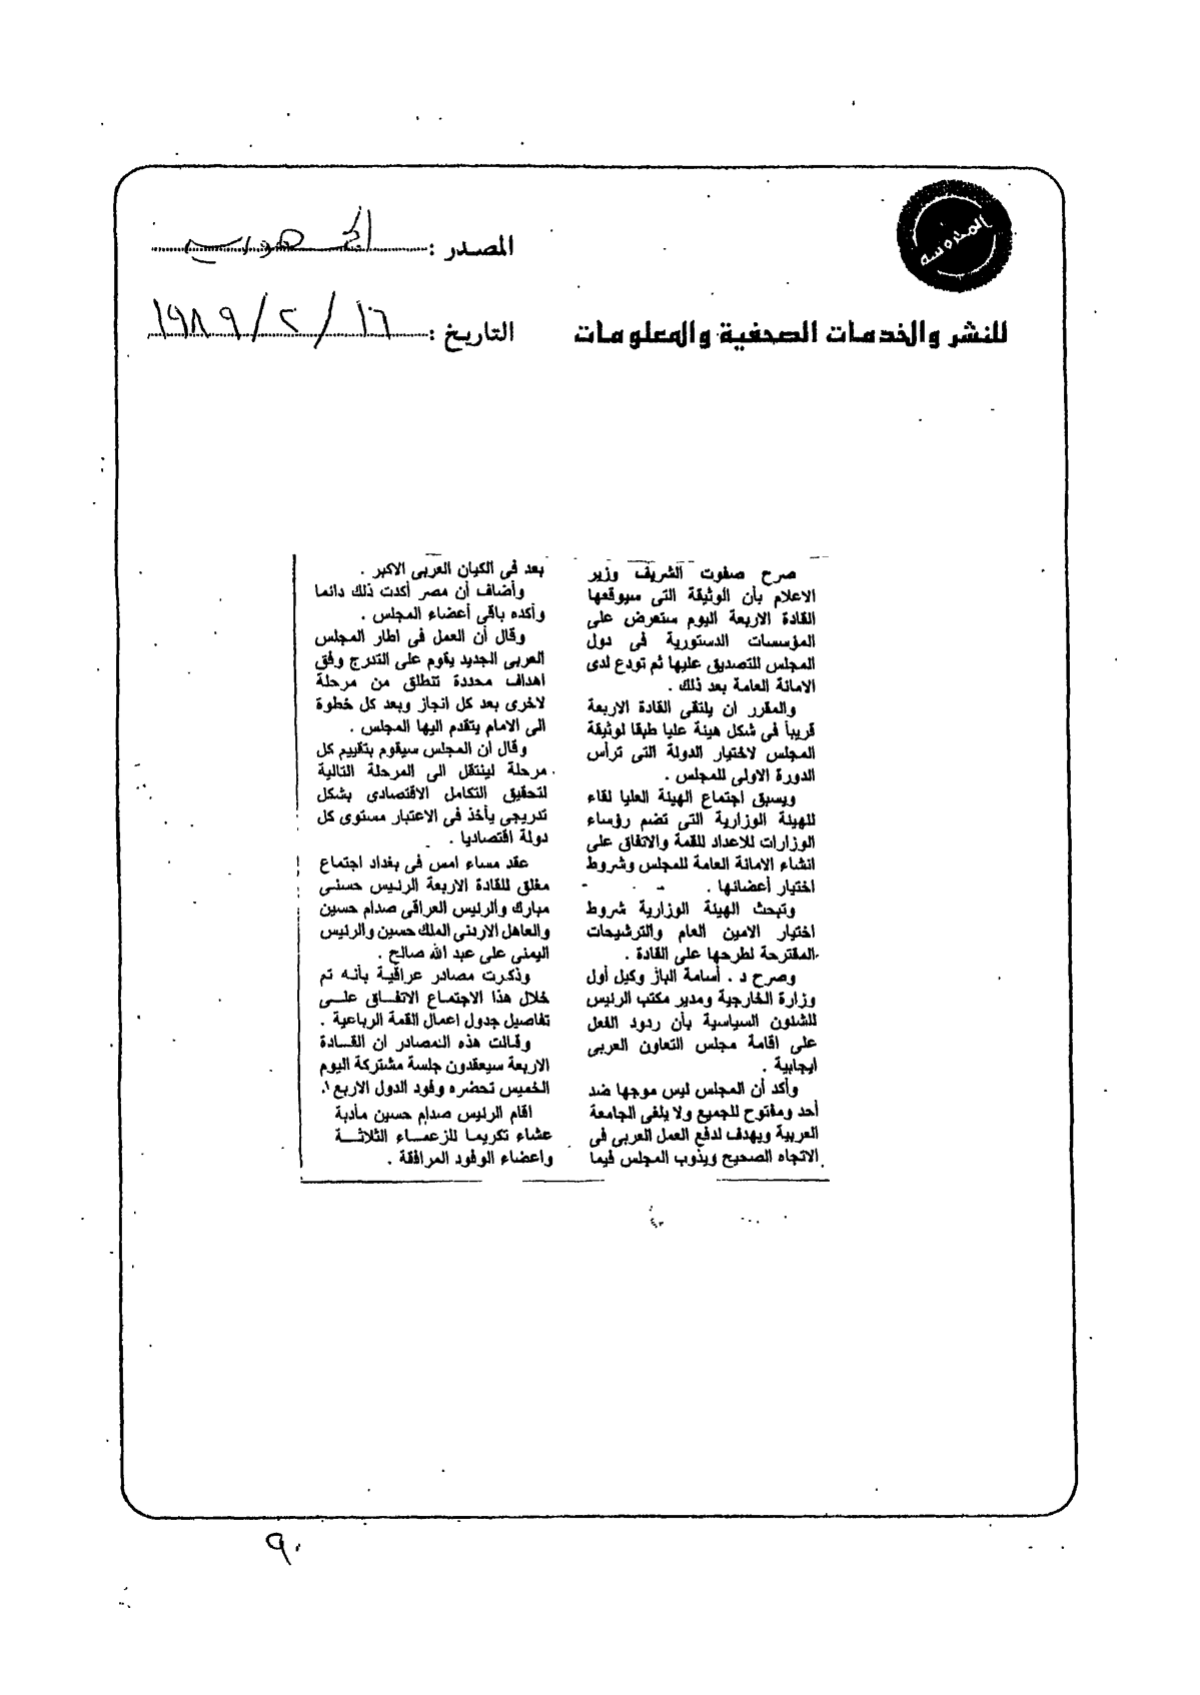 المحروسه
للنشر والخدمات الصحفية والمعلومات
المصدر : الجمهورية
التاريخ : ١٦ / ٢ / ١٩٨٩
صرح صفوت الشريف وزير
الاعلام بأن الوثيقة التى سيوقعها
القادة الاربعة اليوم ستعرض على
المؤسسات الدستورية فى دول
المجلس للتصديق عليها ثم تودع لدى
الامانة العامة بعد ذلك .
والمقرر ان يلتقى القادة الاربعة
قريبا فى شكل هيئة عليا طبقا لوثيقة
المجلس لاختيار الدولة التى ترأس
الدورة الاولى للمجلس .
ويسبق اجتماع الهيئة العليا لقاء
للهيئة الوزارية التى تضم رؤساء
الوزارات للاعداد للقمة والاتفاق على
انشاء الامانة العامة للمجلس وشروط
اختيار أعضائها .
وتبحث الهيئة الوزارية شروط
اختيار الامين العام والترشيحات
المقترحة لطرحها على القادة .
وصرح د . أسامة الباز وكيل أول
وزارة الخارجية ومدير مكتب الرئيس
للشئون السياسية بأن ردود الفعل
على اقامة مجلس التعاون العربى
ايجابية .
وأكد أن المجلس ليس موجها ضد
أحد ومفتوح للجميع ولا يلغى الجامعة
العربية ويهدف لدفع العمل العربى فى
الاتجاه الصحيح ويذوب المجلس فيما
بعد فى الكيان العربى الاكبر .
وأضاف أن مصر أكدت ذلك دائما
وأكده باقى أعضاء المجلس .
وقال أن العمل فى اطار المجلس
العربى الجديد يقوم على التدرج وفق
اهداف محددة تنطلق من مرحلة
لاخرى بعد كل انجاز وبعد كل خطوة
الى الامام يتقدم اليها المجلس .
وقال ان المجلس سيقوم بتقييم كل
مرحلة لينتقل الى المرحلة التالية
لتحقيق التكامل الاقتصادى بشكل
تدريجى يأخذ فى الاعتبار مستوى كل
دولة اقتصاديا .
عقد مساء امس فى بغداد اجتماع
مغلق للقادة الاربعة الرئيس حسنى
مبارك والرئيس العراقى صدام حسين
والعاهل الاردنى الملك حسين والرئيس
اليمنى على عبد الله صالح .
وذكرت مصادر عراقية بأنه تم
خلال هذا الاجتماع الاتفاق على
تفاصيل جدول اعمال القمة الرباعية .
وقالت هذه المصادر ان القادة
الاربعة سيعقدون جلسة مشتركة اليوم
الخميس تحضره وفود الدول الاربع .
اقام الرئيس صدام حسين مأدبة
عشاء تكريما للزعماء الثلاثة
واعضاء الوفود المرافقة .
٩٠